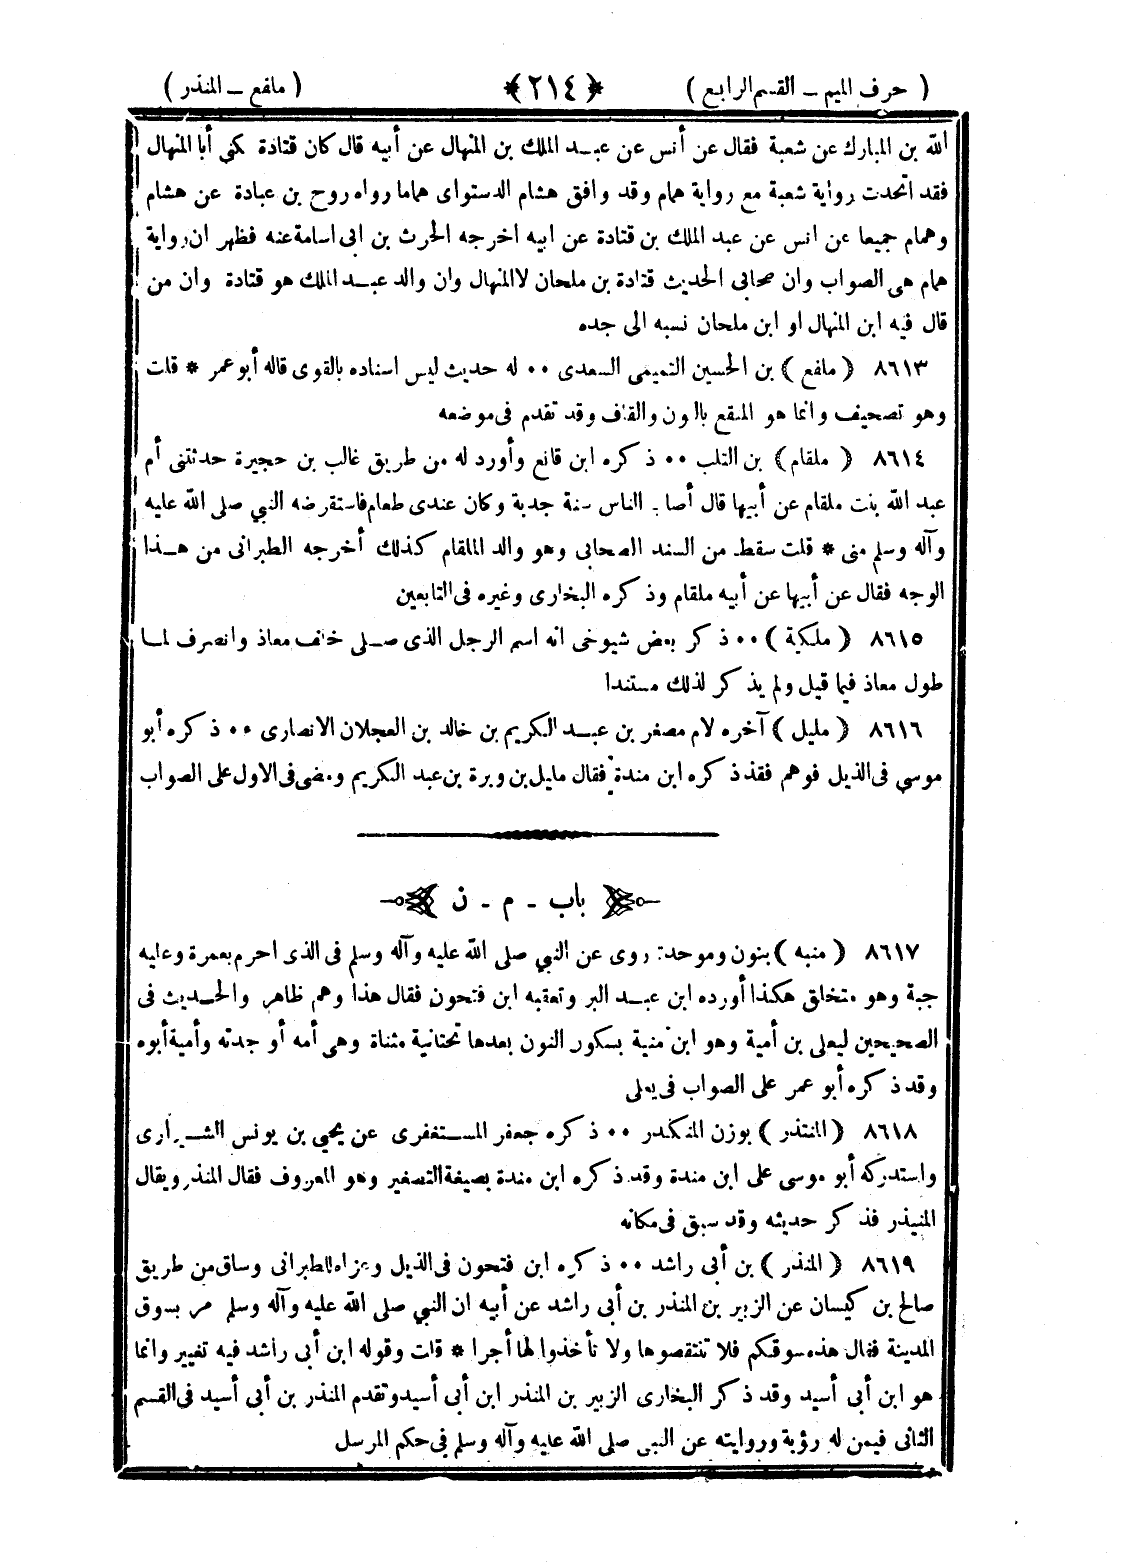 ( حرف الميم ــ القسم الرابع ) ﴿ ٢١٤ ﴾ ( مافع ــ المنذر )
الله بن المبارك عن شعبة فقال عن أنس عن عبد الملك بن المنهال عن أبيه قال كان قتادة يكنى أبا المنهال
فقد اتحدت رواية شعبة مع رواية همام وقد وافق هشام الدستواى هماما رواه روح بن عبادة عن هشام
وهمام جميعا عن انس عن عبد الملك بن قتادة عن ابيه اخرجه الحرث بن ابى اسامة عنه فظهر ان رواية
همام هى الصواب وان صحابى الحديث قتادة بن ملحان لا المنهال وان والد عبد الملك هو قتادة وان من
قال فيه ابن المنهال او ابن ملحان نسبه الى جده
٨٦١٣ ( ملفع ) بن الحسين التميمى السعدى ٠٠ له حديث ليس اسناده بالقوى قاله أبو عمر * قلت
وهو تصحيف وانما هو المنقع بالنون والقاف وقد تقدم فى موضعه
٨٦١٤ ( ملقام ) بن التلب ٠٠ ذكره ابن قانع وأورد له من طريق غالب بن حجيرة حدثتنى أم
عبد الله بنت ملقام عن أبيها قال أصاب الناس سنة جدبة وكان عندى طعام فاستقرضه النبي صلى الله عليه
وآله وسلم منى * قلت سقط من السند الصحابى وهو والد الملقام كذلك أخرجه الطبرانى من هذا
الوجه فقال عن أبيها عن أبيه ملقام وذكره البخارى وغيره فى التابعين
٨٦١٥ ( ملكية ) ٠٠ ذكر بعض شيوخى انه اسم الرجل الذى صلى خلف معاذ وانصرف لما
طول معاذ فيما قيل ولم يذكر لذلك مستندا
٨٦١٦ ( مليل ) آخره لام مصغر بن عبد الكريم بن خالد بن العجلان الانصارى ٠٠ ذكره أبو
موسى فى الذيل فوهم فقد ذكره ابن مندة فقال مليل بن وبرة بن عبد الكريم ومضى فى الاول على الصواب
باب ـ م ـ ن
٨٦١٧ ( منبه ) بنون وموحدة روى عن النبي صلى الله عليه وآله وسلم فى الذى احرم بعمرة وعليه
جبة وهو متخلق هكذا أورده ابن عبد البر وتعقبه ابن فتحون فقال هذا وهم ظاهر والحديث فى
الصحيحين ليعلى بن أمية وهو ابن منية بسكون النون بعدها تحتانية مثناة وهى أمه أو جدته وأمية أبوه
وقد ذكره أبو عمر على الصواب فى يعلى
٨٦١٨ ( المنتذر ) بوزن المنكدر ٠٠ ذكره جعفر المستغفرى عن يحيى بن يونس الشيرازى
واستدركه أبو موسى على ابن مندة وقد ذكره ابن مندة بصيغة التصغير وهو المعروف فقال المنذر ويقال
المنيذر فذكر حديثه وقد سبق فى مكانه
٨٦١٩ ( المنذر ) بن أبى راشد ٠٠ ذكره ابن فتحون فى الذيل وعزاه للطبرانى وساق من طريق
صالح بن كيسان عن الزبير بن المنذر بن أبى راشد عن أبيه ان النبي صلى الله عليه وآله وسلم مر بسوق
المدينة فقال هذه سوقكم فلا تنتقصوها ولا تأخذوا لها أجرا * قلت وقوله ابن أبى راشد فيه تغيير وانما
هو ابن أبى أسيد وقد ذكر البخارى الزبير بن المنذر ابن أبى أسيد وتقدم المنذر بن أبى أسيد فى القسم
الثانى فيمن له رؤية وروايته عن النبى صلى الله عليه وآله وسلم فى حكم المرسل